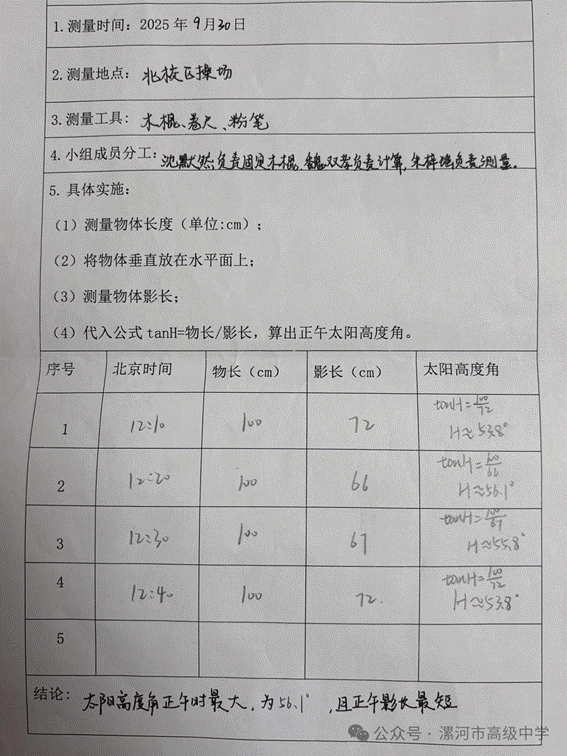 1.测量时间：2025年9月30日
2.测量地点：北校区操场
3.测量工具：木棍、卷尺、粉笔
4.小组成员分工：沈默然负责固定木棍、魏双荣负责计算，朱梓瑞负责测量。
5. 具体实施：
（1）测量物体长度（单位:cm）；
（2）将物体垂直放在水平面上；
（3）测量物体影长；
（4）代入公式 tanH=物长/影长，算出正午太阳高度角。
序号 北京时间 物长（cm） 影长（cm） 太阳高度角
1 12:10 100 72 tanH=100/72 H≈53.8°
2 12:20 100 66 tanH=100/66 H≈56.1°
3 12:30 100 67 tanH=100/67 H≈55.8°
4 12:40 100 72. tanH=100/72 H≈53.8°
5
结论: 太阳高度角正午时最大，为56.1°，且正午影长最短
公众号·漯河市高级中学